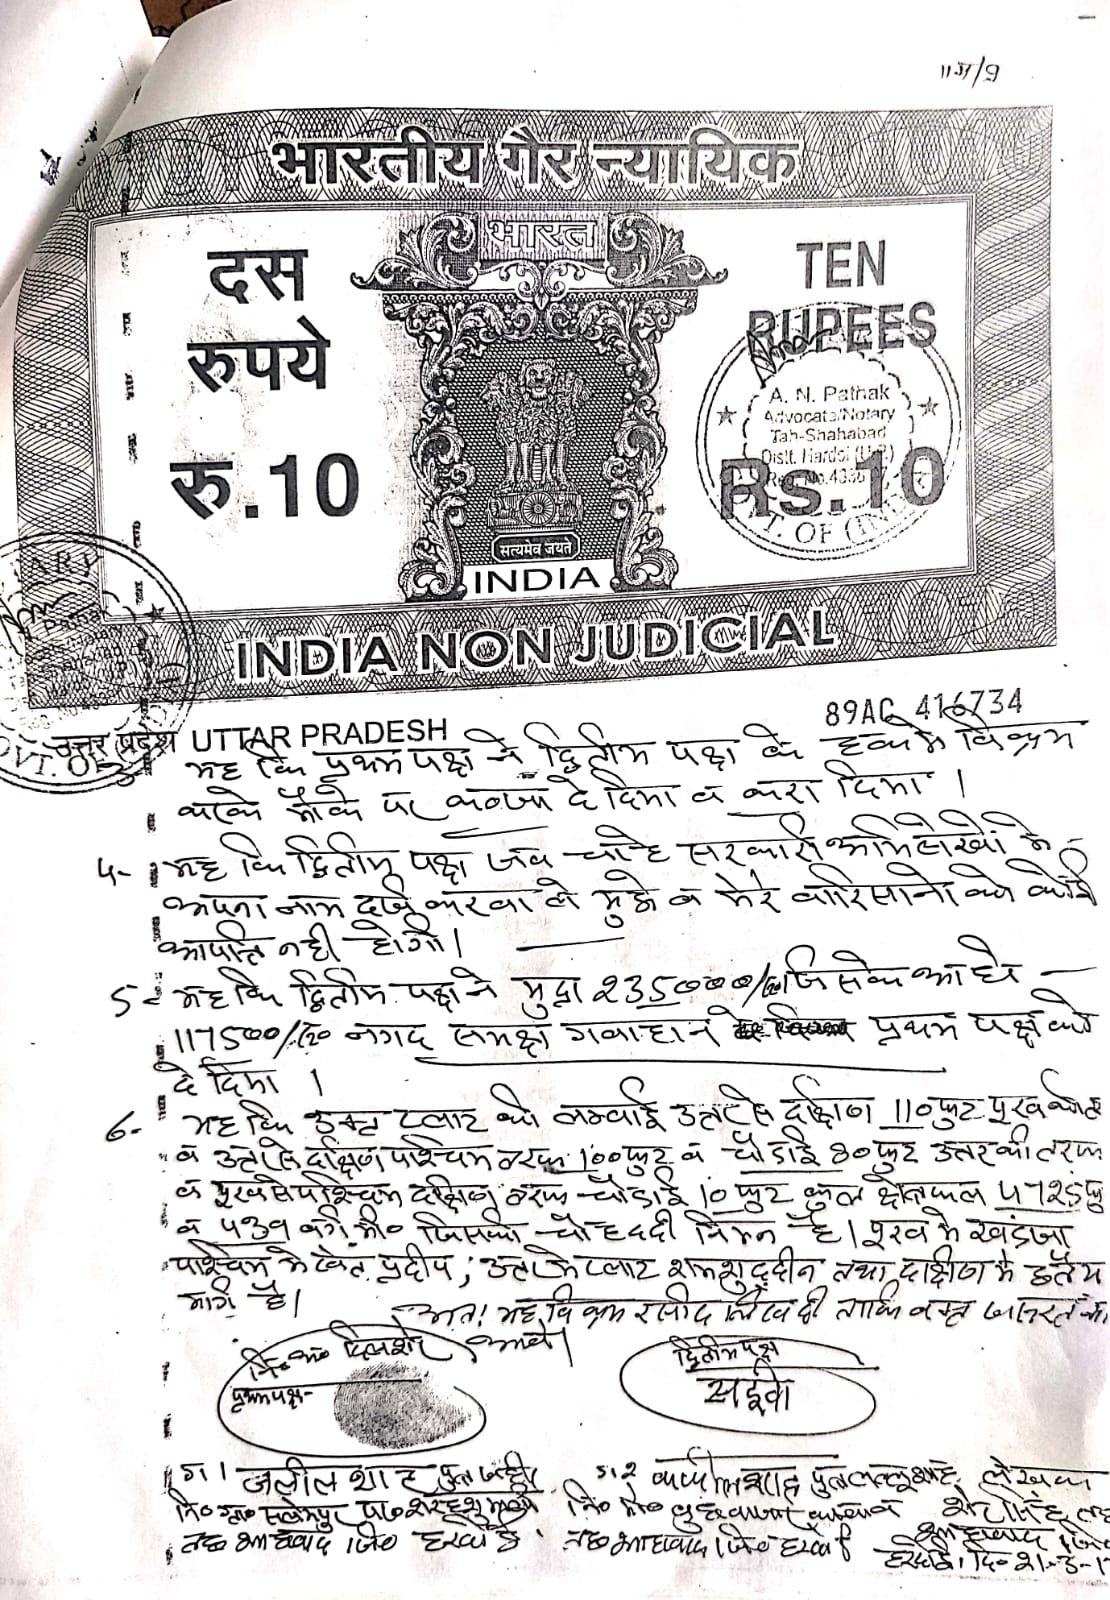 11अ/9
भारतीय गैर न्यायिक
भारत
दस
रुपये
रु.10
TEN
RUPEES
Rs.10
A. N. Pathak
Advocate/Notary
Tah-Shahabad
Distt. Hardoi (U.P.)
सत्यमेव जयते
INDIA
INDIA NON JUDICIAL
उत्तर प्रदेश UTTAR PRADESH
89AC 416734
यह कि प्रथम पक्ष ने द्वितीय पक्ष के हक मे विक्रय
करके मौके पर कब्जा दे दिया व करा दिया ।
4- यह कि द्वितीय पक्ष जब चाहे सरकारी अभिलेखो मे
अपना नाम दर्ज करवा ले मुझे व मेरे वारिसानो को कोई
आपत्ति नही होगी।
5- यह कि द्वितीय पक्ष ने मुद्रा 235000/रू जिसके आधे
117500/रू नगद समक्ष गवाहान प्रथम पक्ष को
दे दिया ।
6- यह कि उक्त प्लाट की लम्बाई उत्तर से दक्षिण 110 फुट पूरब की तरफ
व उत्तर से दक्षिण पश्चिम तरफ 100 फुट व चौडाई 80 फुट उत्तर की तरफ
व पूरब से पश्चिम दक्षिण तरफ चौडाई 10 फुट कुल क्षेत्रफल 4725 फु
व 439 वर्ग मी० जिसकी चौहददी निम्न है। पूरब मे खडंजा
पश्चिम मे खेत प्रदीप, उत्तर मे प्लाट शमशुद्दीन तथा दक्षिण मे
मार्ग है।
अतः यह विक्रय रसीद लिख दी ताकि वक्त जरूरत काम
आवे।
नि० अं०
प्रथम पक्ष-
द्वितीय पक्ष
सईदा
ग 1 जलील शाह पुत्र
तह० शाहाबाद जि० हरदोई
ग 2 पुत्र लल्लू शाह
तह० शाहाबाद जि० हरदोई
लेखक
शाहाबाद जि०
हरदोई। दि० 21-3-1